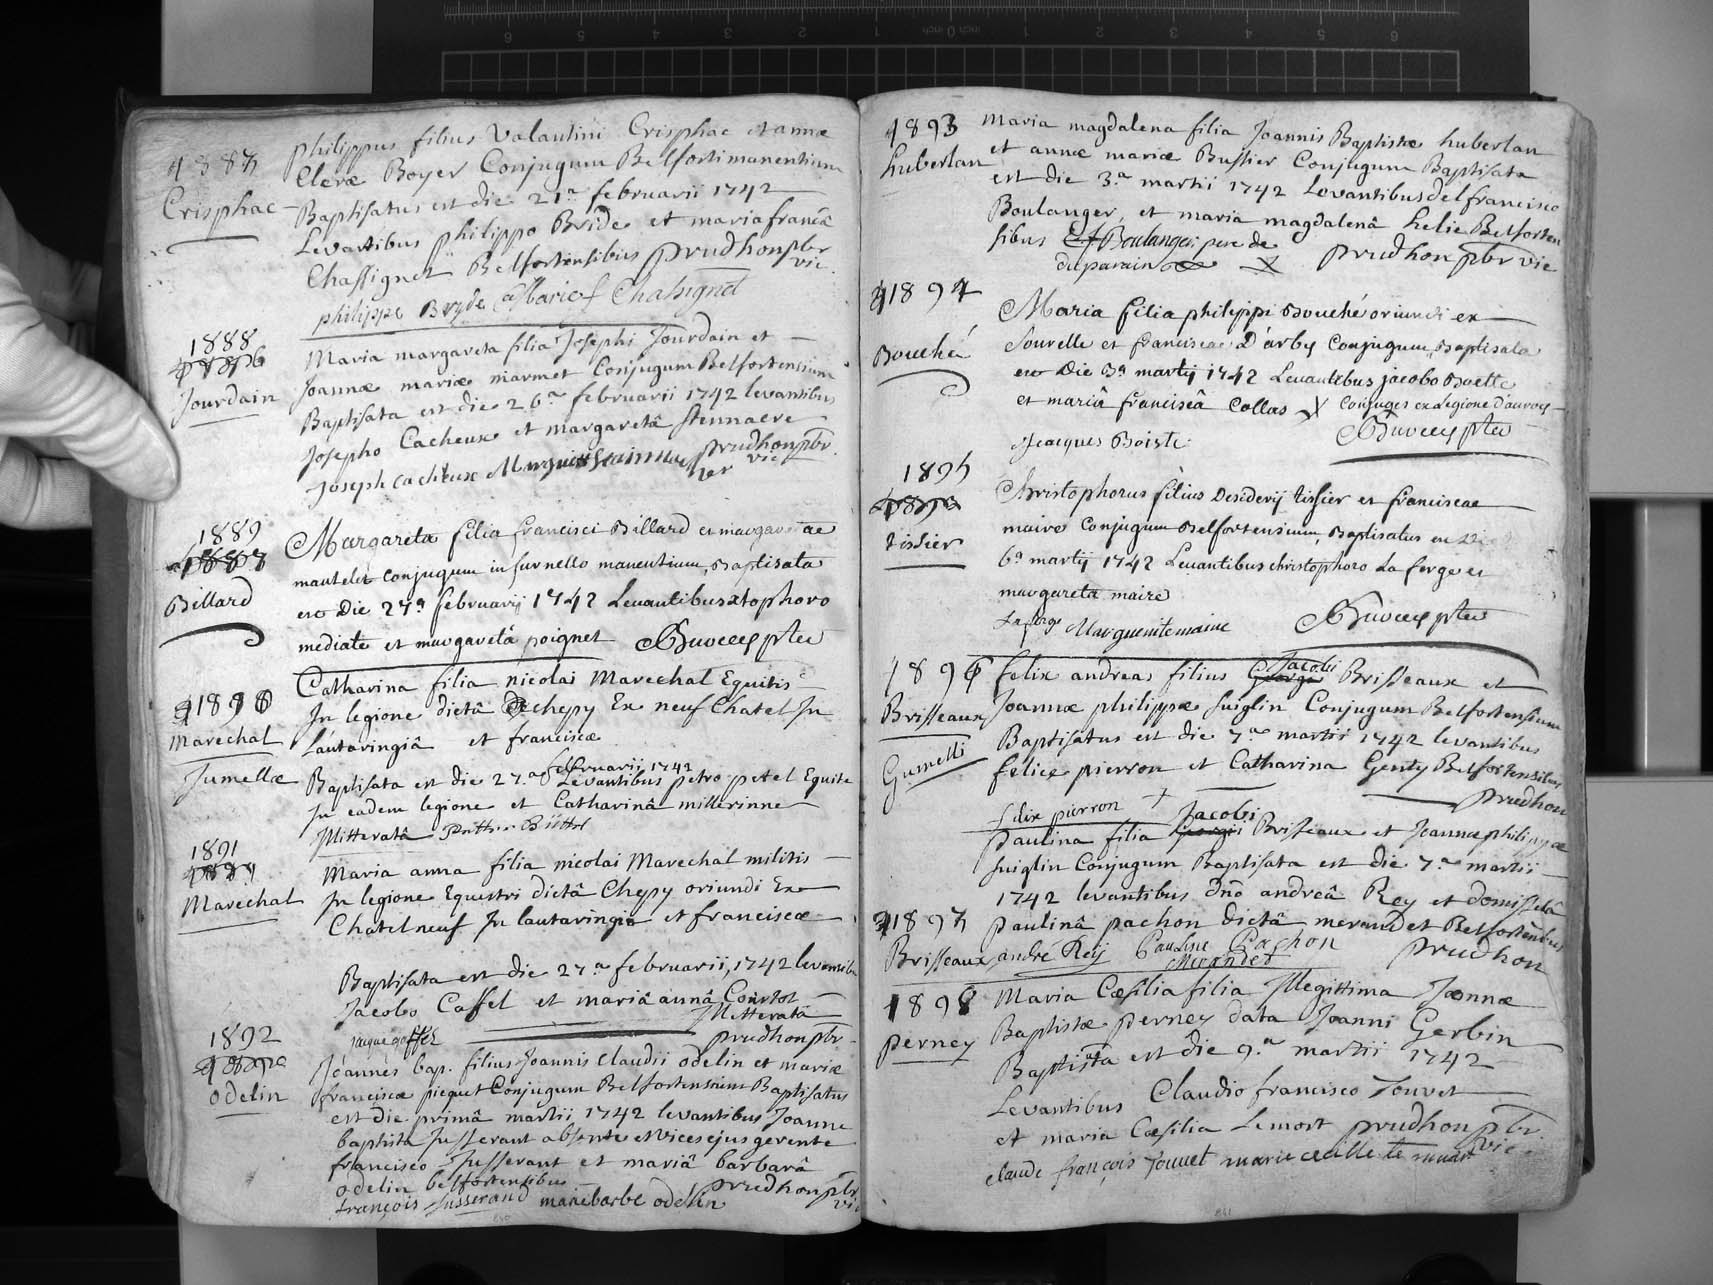 4887
Crisphac
Philippus filius Valantini Crisphac et annæ
Cleræ Boyer Conjugum Belforti manentium
Baptisatus est die 21.a februarii 1742
Levantibus philippo Bride et maria francâ
Chassignet Belfortensibus prudhon pbr
vic.
philippe Bryde Marie f Chasignet
1888
Jourdain
Maria margareta filia Josephi Jourdain et
Joannæ mariæ marmet Conjugum Belfortensium
Baptisata est die 26.a februarii 1742 levantibus
Josepho Cacheux et margaretâ
Joseph cacheux prudhon pbr.
vic
1889
Billard
Margareta filia francisci Billard et margaretae
mautelet conjugum in furnello manentium, Baptisata
est Die 27a februarij 1742 Levantibus xtophoro
mediate et margaretâ poignet
41890
Marechal
Jumellæ
Catharina filia nicolai Marechal Equitis
In legione dictâ chepy Ex neuf Chatel In
Lautaringiâ et franciscæ
februarii 1742
Baptisata est die 27.a Levantibus petro petel Equite
In eadem legione et Catharinâ millerinne
Illitteratâ
1891
Marechal
Maria anna filia nicolai Marechal militis
In legione Equestri dictâ Chepy oriundi Ex
Chatelneuf In lautaringia et franciscæ
Baptisata est die 27.a februarii, 1742 levantibus
Jacobo Caffel et mariâ annâ Courtot
Illitteratâ
prudhon pbr
1892
odelin
Joannes bap. filius Joannis Claudii odelin et mariæ
franciscæ piequet Conjugum Belfortensium Baptisatus
est die primâ martii 1742 levantibus Joanne
baptista Jusserant absente et vices ejus gerente
francisco Jusserant et mariâ barbarâ
odelin belfortensibus prudhon pbr
vic
françois Jusserand marie barbe odelin
840
4893
huberlan
Maria magdalena filia Joannis Baptistæ huberlan
et annæ mariæ Bussier Conjugum Baptisata
est die 3.a martii 1742 Levantibus del francisco
Boulanger, et maria magdalenâ helie Belforten
sibus Boulanger pere de
du parain X prudhon pbr vic
41894
Bouché
Maria filia philippi Bouché oriundi ex
Sourelle et franciscae D'arbey Conjugum, Baptisata
est Die 3a martij 1742 Levantibus jacobo Boette
et mariâ franciscâ Collas X Conjuges ex Legione
Jacques Boiste
1895
tissier
Christophorus filius Desiderij tissier et franciscae
maire conjugum Belfortensium, Baptisatus est Die
6a martij 1742 Levantibus christophoro La forge et
margareta maire
Laforge Marguerite maire
4896
Brisseaux
Gumelli
felix andreas filius Jacobi Brisseaux et
Joannæ philippæ Suiglin Conjugum Belfortensium
Baptisatus est die 7.a martii 1742 levantibus
felice pierron et Catharina Genty Belfortensibus
prudhon
felix pierron +
Jacobi
paulina filia Brisseaux et Joannæ philippæ
Suiglin Conjugum Baptisata est die 7.a martii
1742 levantibus dno andreâ Rey et domisselâ
41897
Brisseaux
paulinâ pachon dictâ merandet Belfortensibus
andré Rey Pauline Pachon prudhon
Merandet
1898
perney
Maria Cæsilia filia Illegittima Joannæ
Baptistæ perney data Joanni Gerbin
Baptisata est die 9.a martii 1742
Levantibus Claudio francisco Jouvet
et maria Cæsilia Lemort prudhon pbr.
vic.
claude françois Jouvet
841